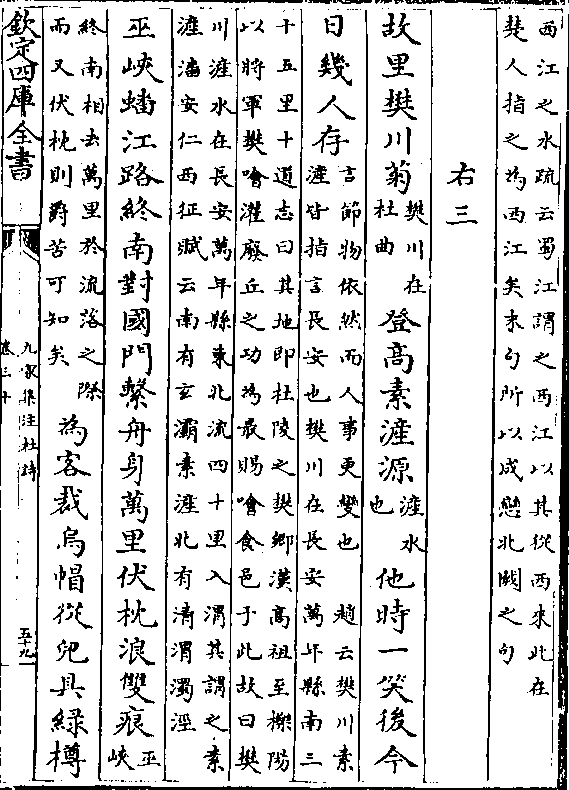 西江之水疏云蜀江謂之西江以其從西來此在
楚人指之為西江矣末句所以成戀北闕之句
右三
故里樊川菊樊川在杜曲登高素滻源滻水也他時一笑後今
日幾人存言節物依然而人事更變也趙云樊川素
滻皆指言長安也樊川在長安萬年縣南三
十五里十道志曰其地即杜陵之樊鄉漢高祖至櫟陽
以將軍樊噲灌廢丘之功為最賜噲食邑于此故曰樊
川滻水在長安萬年縣東北流四十里入渭其謂之素
滻潘安仁西征賦云南有玄灞素滻北有清渭濁涇
巫峽蟠江路終南對國門繫舟身萬里伏枕浪雙痕巫峽
終南相去萬里於流落之際
而又伏枕則爵苦可知矣為客裁烏帽從兒具綠樽
欽定四庫全書
九家集注杜詩
卷三十
五十九